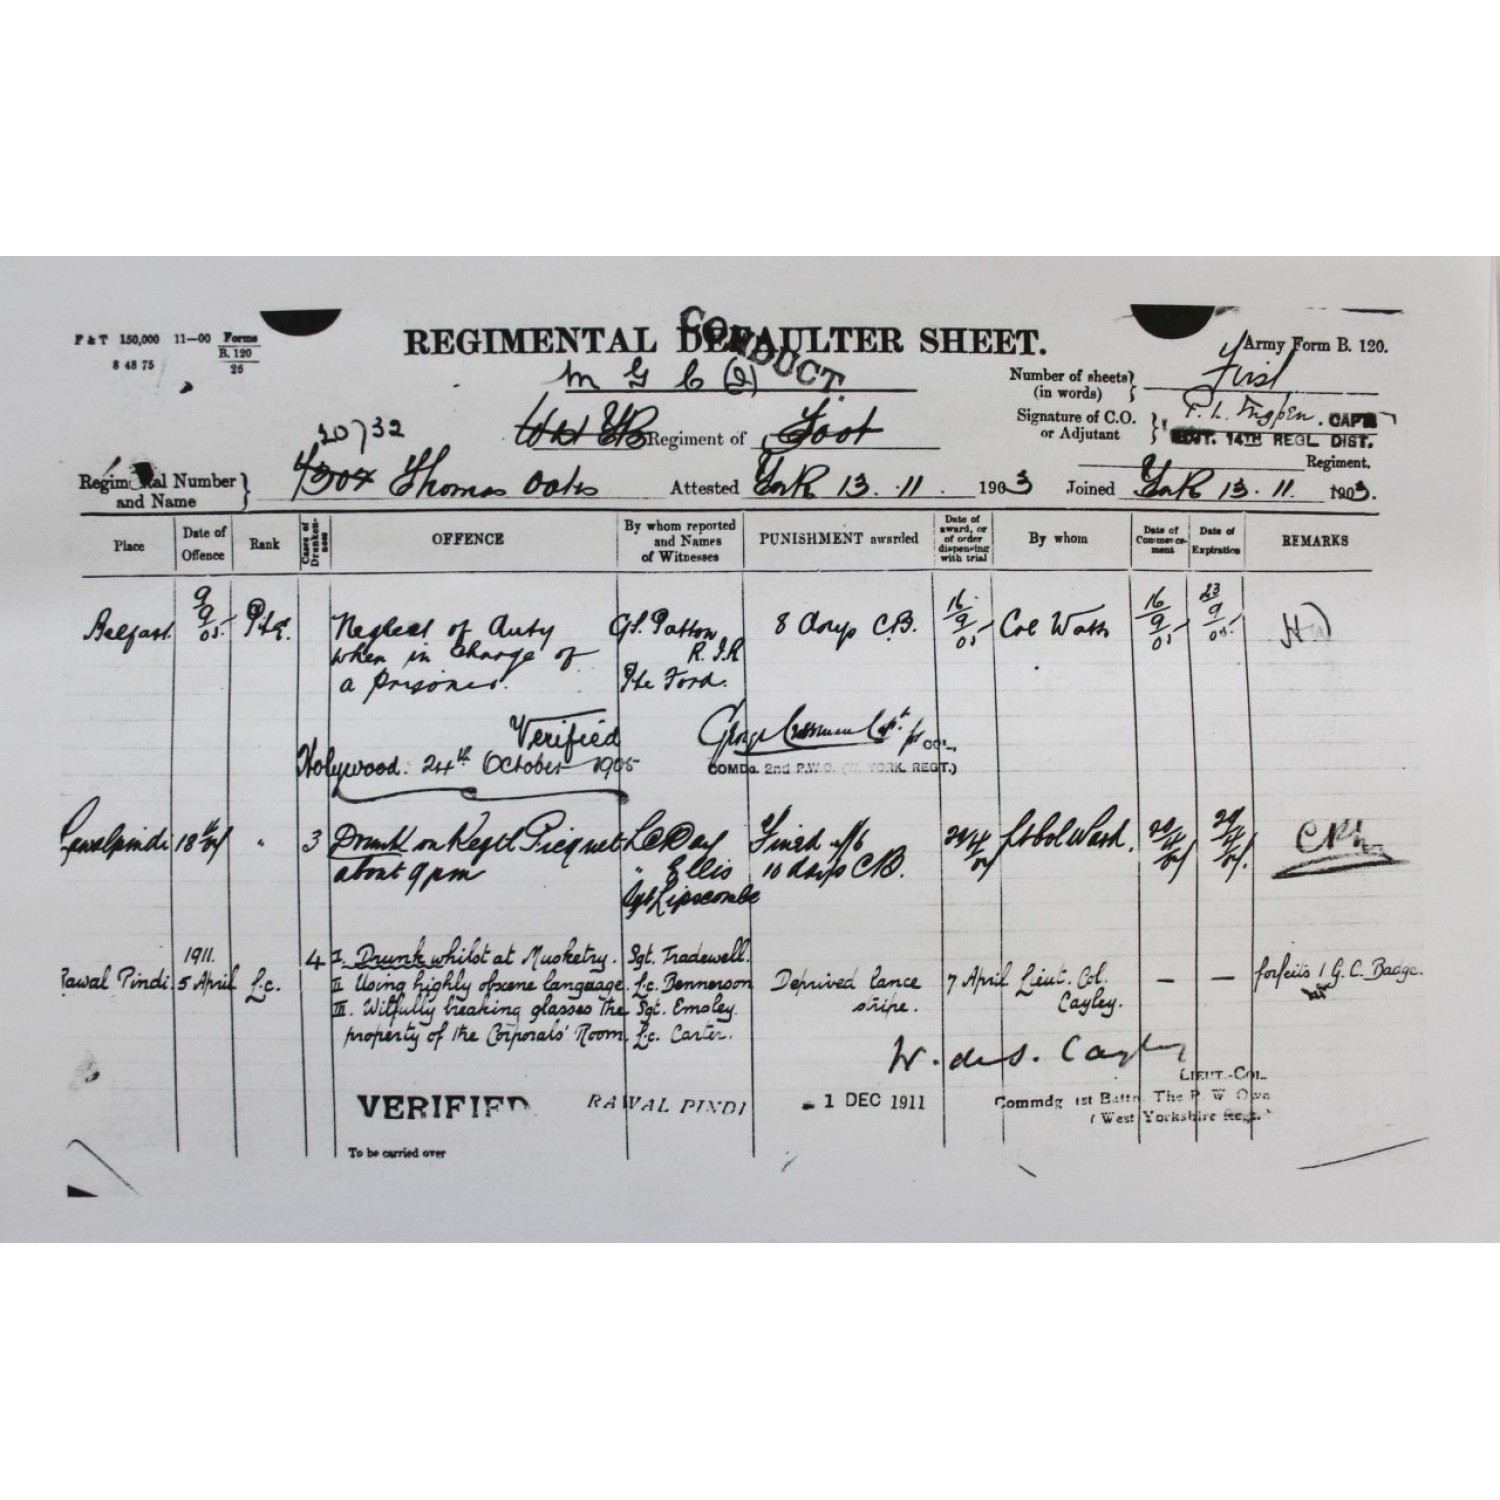 F & T 150,000 11-00 Forms
B. 120
26
8 48 75
REGIMENTAL DEFAULTER SHEET.
CONDUCT.
Army Form B. 120.
M G C (I)
Number of sheets (in words) } First
Signature of C.O. or Adjutant } CAPT
ADJT. 14TH REGL DIST.
Regiment of Foot
Regiment.
20732
Regimental Number and Name } Thomas Oates Attested York 13. 11. 1903 Joined York 13. 11. 1903.
Place
Date of Offence
Rank
Cases of Drunkenness
OFFENCE
By whom reported and Names of Witnesses
PUNISHMENT awarded
Date of award, or of order dispensing with trial
By whom
Date of Commencement
Date of Expiration
REMARKS
Belfast 9/9/05 Pte. Neglect of duty Patton 8 days C.B. 16/9/05 Col Watts 16/9/05 23/9/05
when in charge of R. I. R
a prisoner. Pte Ford.
Verified
Holywood. 24th October 1905
COL.,
COMDG. 2nd P.W.O. (W. YORK. REGT.)
Rawalpindi 18 " 3 Drunk on Regtl Picquet LC Day Fined
about 9 pm " Ellis 10 days CB.
Sgt Lipscombe
1911. 4 I. Drunk whilst at Musketry. Sgt. Tradewell.
Rawal Pindi. 5 April L.c. II Using highly obscene language. L.c. Bennerson Deprived lance 7 April Lieut. Col. — — forfeits 1 G.C. Badge.
III. Wilfully breaking glasses the Sgt. Emsley. stripe. Cayley.
property of the Corporals' Room. L.c. Carter.
W. de S. Cayley
LIEUT.-COL.
VERIFIED RAWAL PINDI - 1 DEC 1911 Commdg 1st Battn. The P. W. Own
(West Yorkshire Regt.)
To be carried over